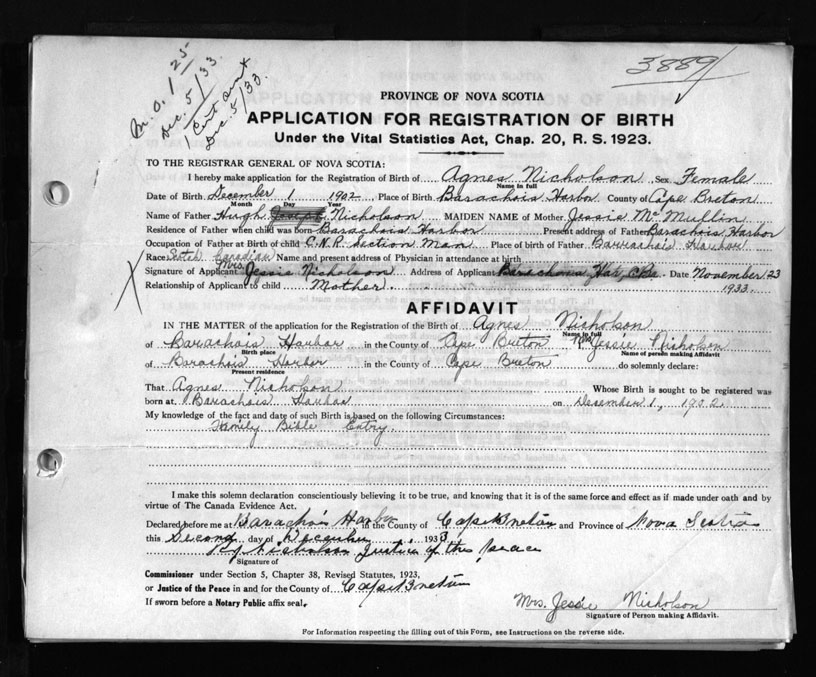 3889
M.O. 1.25
Dec. 5/33.
1 Cert sent
Dec. 5/33.
PROVINCE OF NOVA SCOTIA
APPLICATION FOR REGISTRATION OF BIRTH
Under the Vital Statistics Act, Chap. 20, R. S. 1923.
TO THE REGISTRAR GENERAL OF NOVA SCOTIA:
I hereby make application for the Registration of Birth of Agnes Nicholson Sex Female
Name in full
Date of Birth December 1 1902 Place of Birth Barachois Harbor County of Cape Breton
Month Day Year
Name of Father Hugh Joseph Nicholson MAIDEN NAME of Mother Jessie McMullin
Residence of Father when child was born Barachois Harbor Present address of Father Barachois Harbor
Occupation of Father at Birth of child C.N.R. Section Man Place of birth of Father Barrachois Harbor
Race Scotch Canadian Name and present address of Physician in attendance at birth
Signature of Applicant Mrs. Jessie Nicholson Address of Applicant Barachois Har, C.B. Date November 23
Relationship of Applicant to child Mother 1933.
AFFIDAVIT
IN THE MATTER of the application for the Registration of the Birth of Agnes Nicholson
Name in full
of Barachois Harbor in the County of Cape Breton Mrs. Jessie Nicholson
Birth place Name of person making Affidavit
of Barachois Harbor in the County of Cape Breton do solemnly declare:
Present residence
That Agnes Nicholson Whose Birth is sought to be registered was
born at Barachois Harbor on December 1, 1902.
My knowledge of the fact and date of such Birth is based on the following Circumstances:
Family Bible Entry.
I make this solemn declaration conscientiously believing it to be true, and knowing that it is of the same force and effect as if made under oath and by
virtue of The Canada Evidence Act.
Declared before me at Barachois Harbor in the County of Cape Breton and Province of Nova Scotia
this Second day of December, 1933
Nicholson Justice of the peace
Signature of
Commissioner under Section 5, Chapter 38, Revised Statutes, 1923,
or Justice of the Peace in and for the County of Cape Breton
If sworn before a Notary Public affix seal.
Mrs. Jessie Nicholson
Signature of Person making Affidavit.
For Information respecting the filling out of this Form, see Instructions on the reverse side.